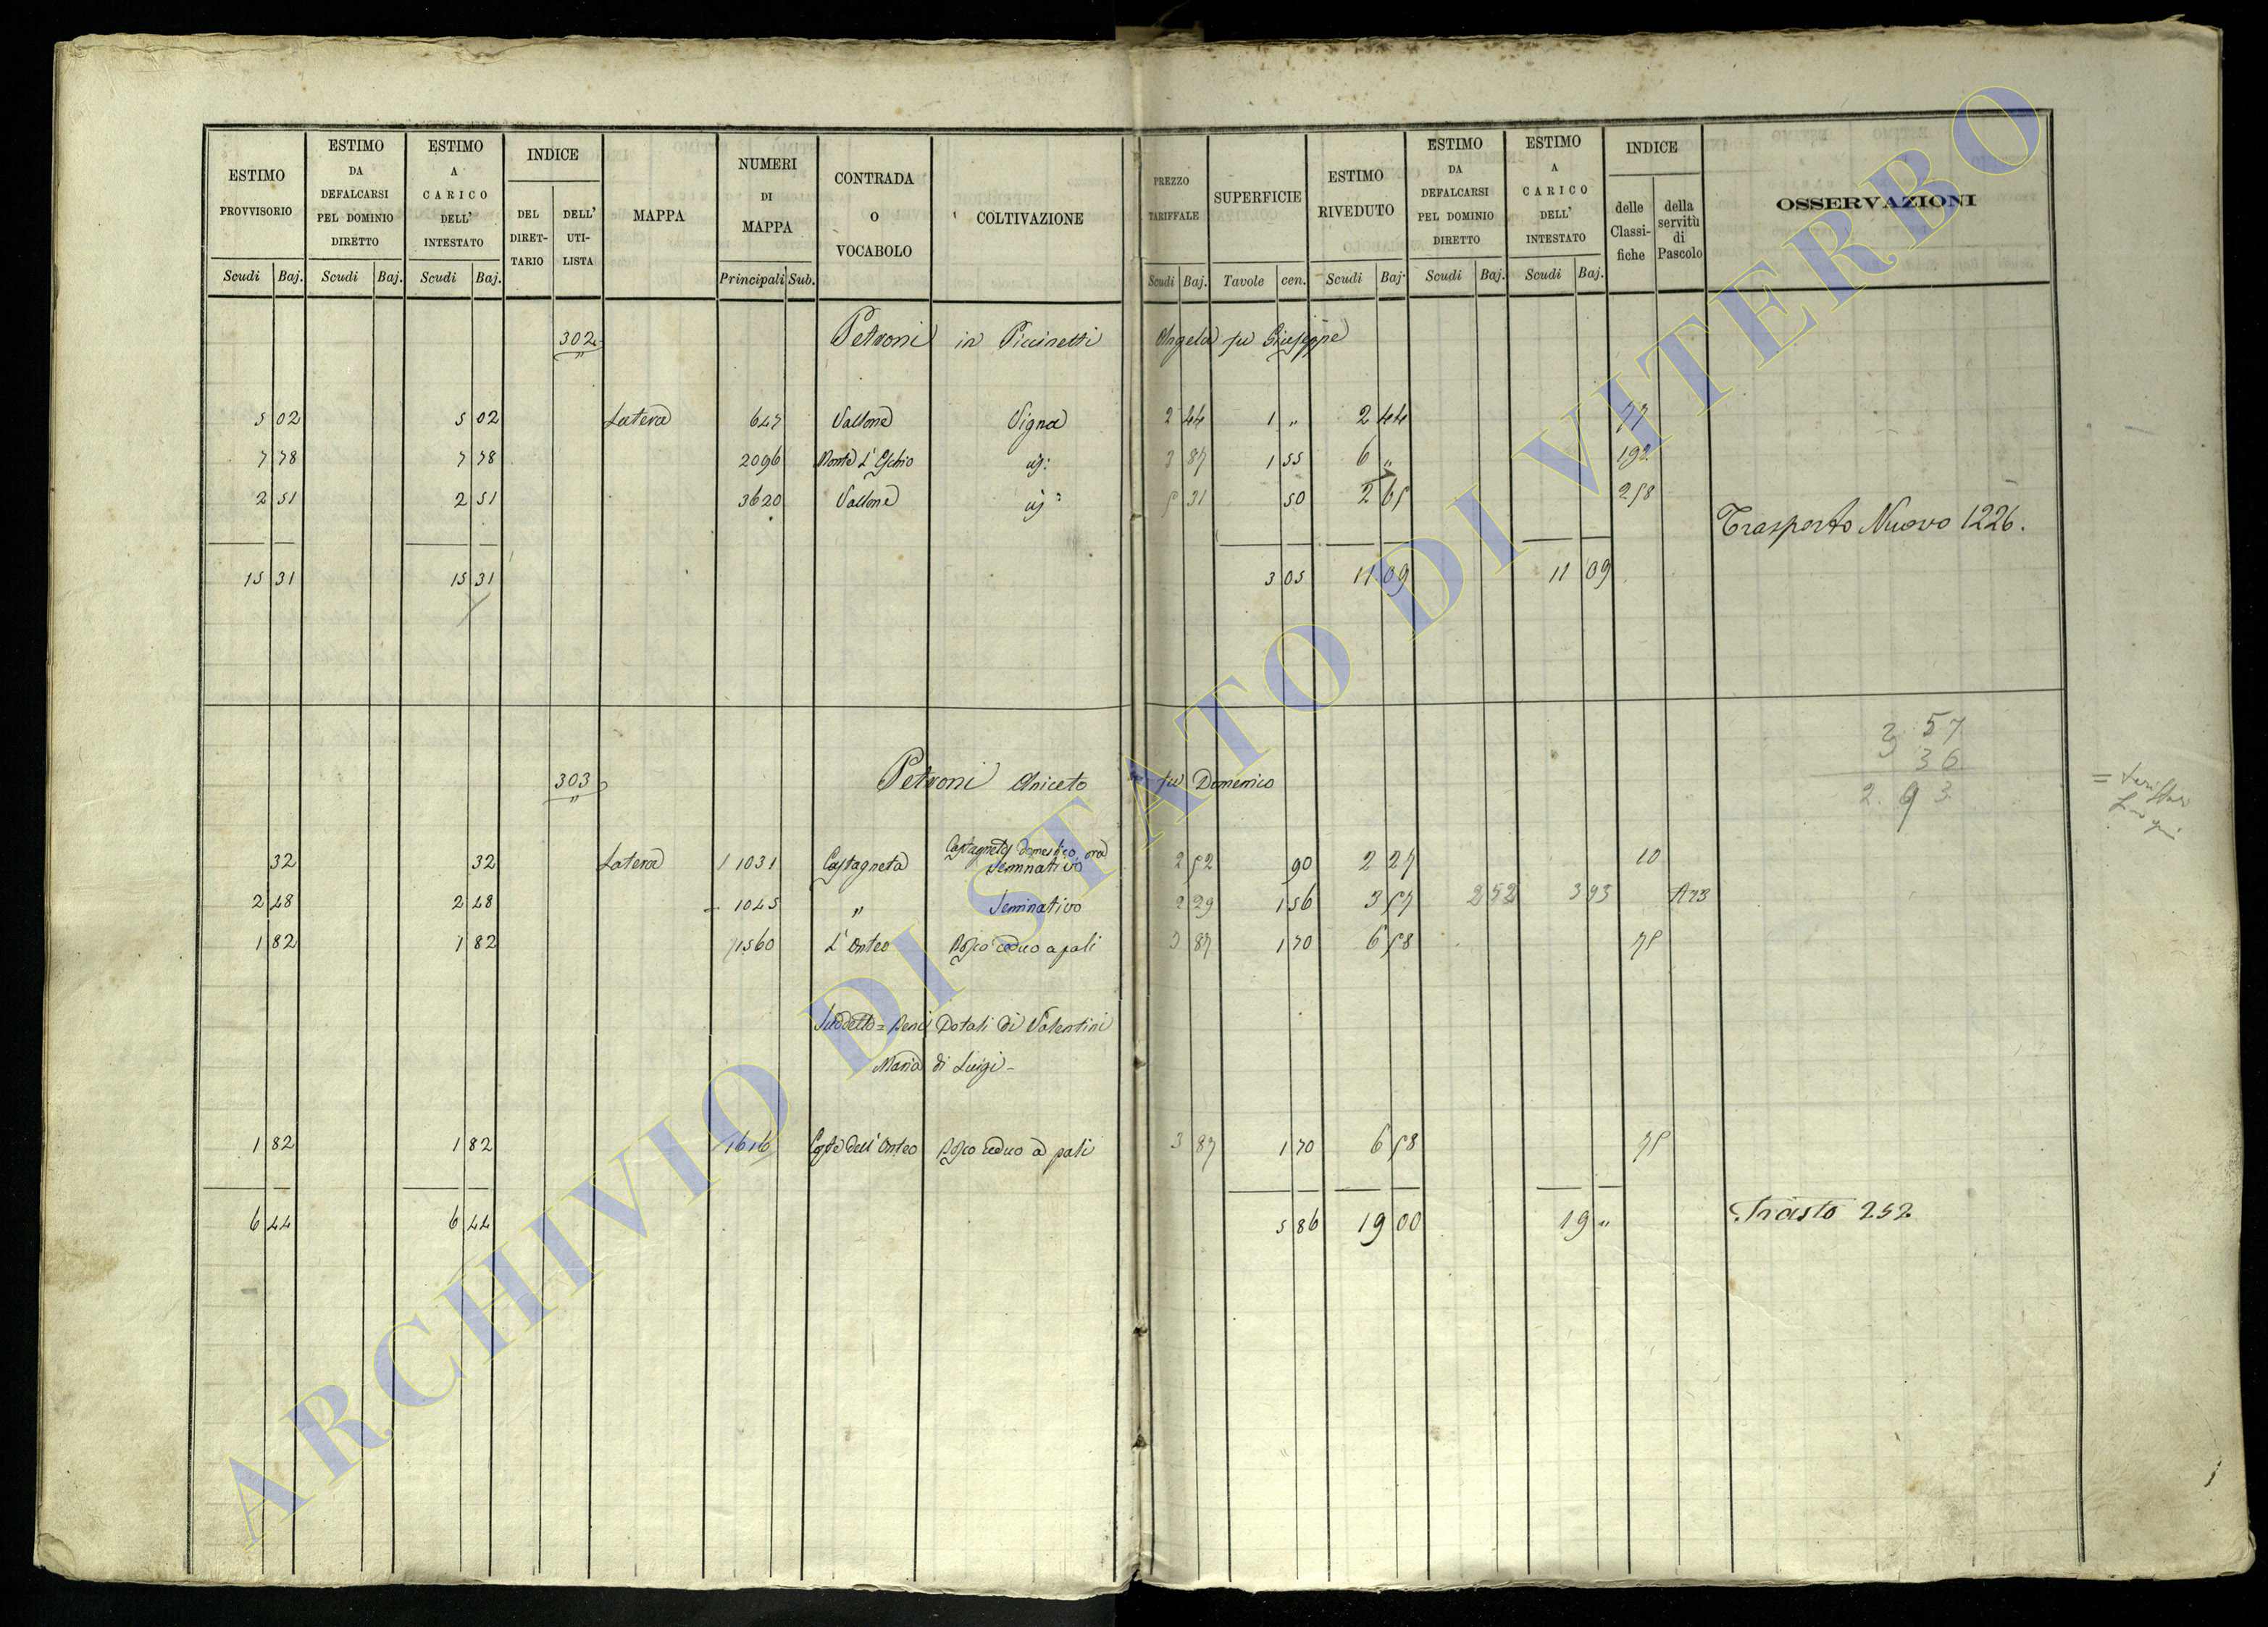 ESTIMO PROVVISORIO | ESTIMO DA DEFALCARSI PEL DOMINIO DIRETTO | ESTIMO A CARICO DELL' INTESTATO | INDICE | MAPPA | NUMERI DI MAPPA | CONTRADA O VOCABOLO | COLTIVAZIONE | PREZZO TARIFFALE | SUPERFICIE | ESTIMO RIVEDUTO | ESTIMO DA DEFALCARSI PEL DOMINIO DIRETTO | ESTIMO A CARICO DELL' INTESTATO | INDICE | OSSERVAZIONI
DEL DIRETTARIO | DELL' UTILISTA | delle Classifiche | della servitù di Pascolo
Scudi | Baj. | Scudi | Baj. | Scudi | Baj. | Principali | Sub. | Scudi | Baj. | Tavole | cen. | Scudi | Baj. | Scudi | Baj. | Scudi | Baj.
302 Petroni in Piccinetti Angela fu Giuseppe
5 02 | 5 02 | Latera | 647 | Vallone | Vigna | 2 44 | 1 " | 2 44 | 77
7 78 | 7 78 | 2096 | Monte L'Eschio | id: | 3 87 | 1 55 | 6 " | 192
2 51 | 2 51 | 3620 | Vallone | id: | 5 31 | 50 | 2 65 | 258
Trasporto Nuovo 1226.
15 31 | 15 31 | 3 05 | 11 09 | 11 09
3 57
36
2. 93
303 Petroni Aniceto fu Domenico
32 | 32 | Latera | 1031 | Castagneta | Castagneto domestico, ora Seminativo | 2 52 | 90 | 2 27 | 10
2 48 | 2 48 | 1045 | " | Seminativo | 2 29 | 1 56 | 3 57 | 2 52 | 3 93 | A23
1 82 | 1 82 | 1560 | L'Onteo | Bosco ceduo a pali | 3 87 | 1 70 | 6 58 | 75
Suddetto = Beni Dotali di Valentini
Maria di Luigi -
1 82 | 1 82 | 1616 | Coste dell'Onteo | Bosco ceduo a pali | 3 87 | 1 70 | 6 58 | 75
6 44 | 6 44 | 5 86 | 19 00 | 19 " | Trasto 252
ARCHIVIO DI STATO DI VITERBO